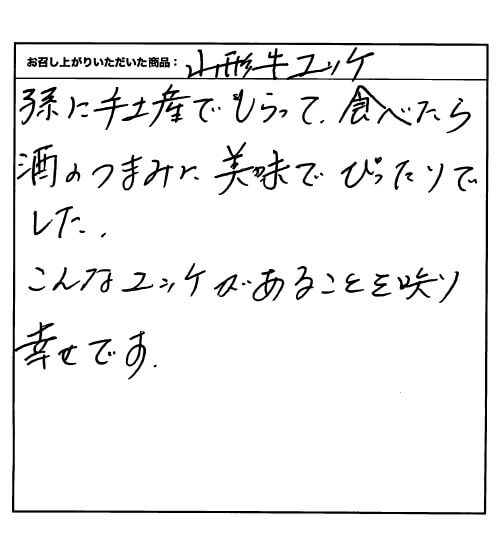 お召し上がりいただいた商品： 山形牛ユッケ
孫に手土産でもらって、食べたら
酒のつまみに美味でぴったりで
した、
こんなユッケがあることを知り
幸せです.